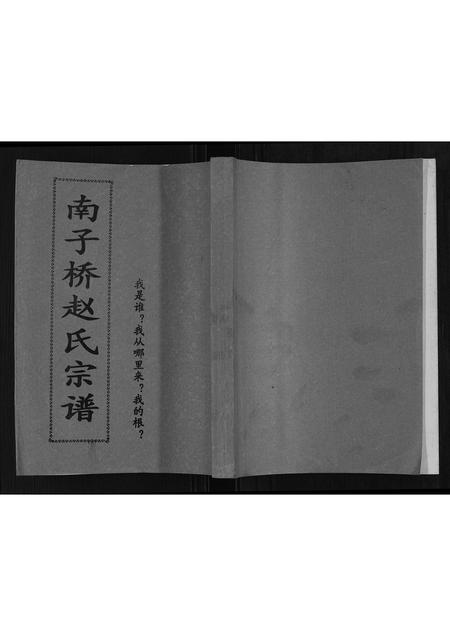 南子桥赵氏宗谱
我是谁？我从哪里来？我的根？